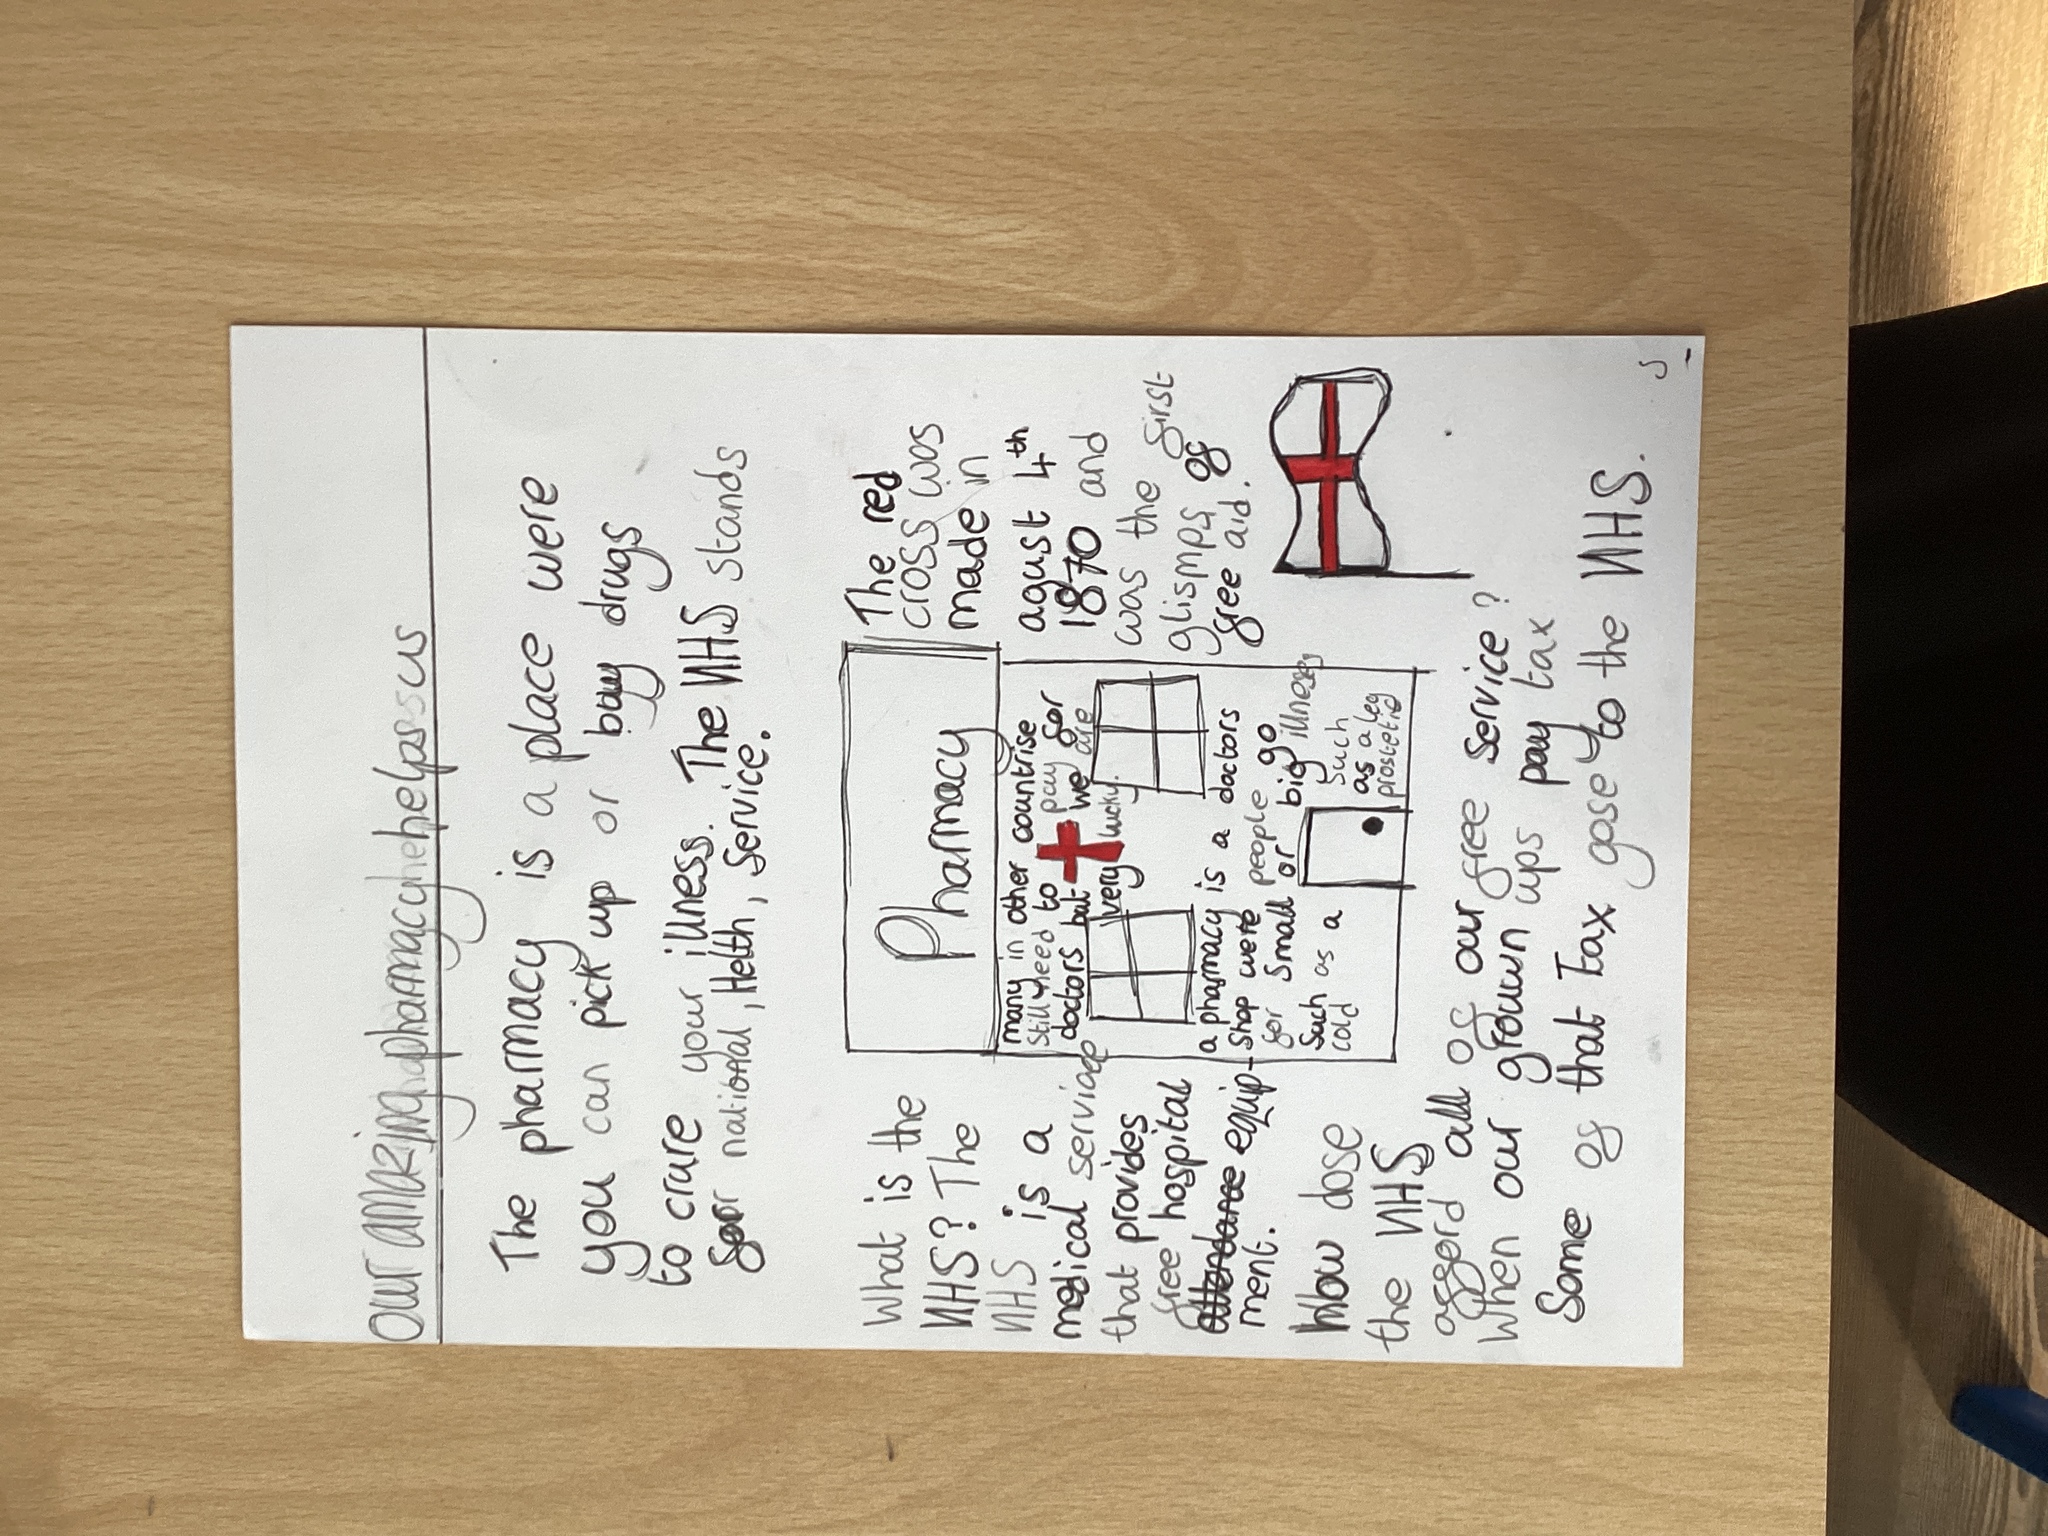 our amazing pharmacy helps us
The pharmacy is a place were
you can pick up or buy drugs
to crure your illness. The NHS stands
for national, Helth, Service.
What is the
NHS? The
NHS is a
medical service
that provides
free hospital
equip-
ment.
Pharmacy
many in other countrise
still need to pay for
doctors but we are
very lucky.
a pharmacy is a doctors
Shop were people go
for Small or big illneses
Such as a
cold
Such
as a leg
prostetic
The red
cross was
made in
agust 4th
1870 and
was the first
glismps of
free aid.
How dose
the NHS
afford all of our free service?
When our grown ups pay tax
Some of that tax gose to the NHS.